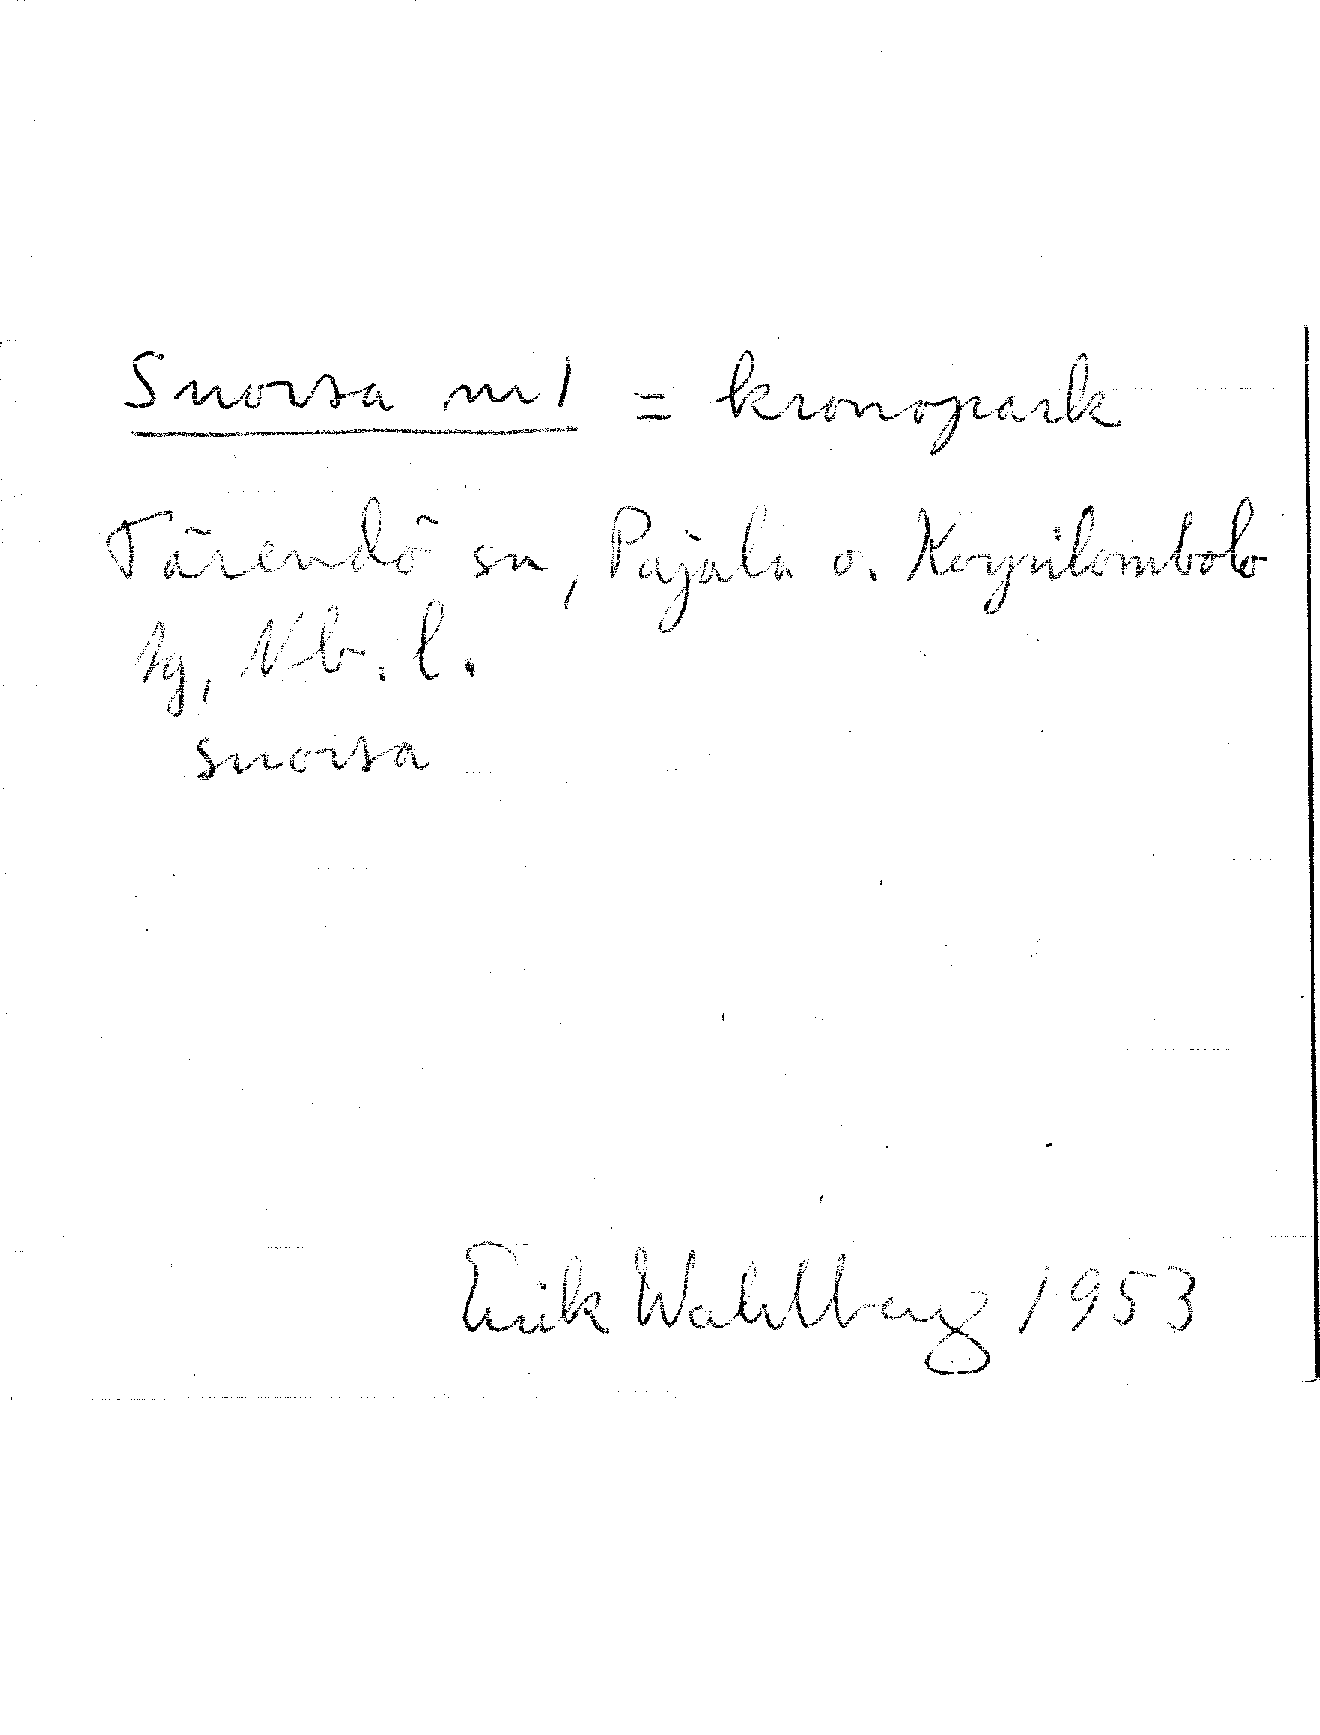 Suorsa nr 1 = kronopark
Tärendö sn, Pajala o. Korpilombolo
tg, Nb. l.
suorsa
Erik Wahlberg 1953